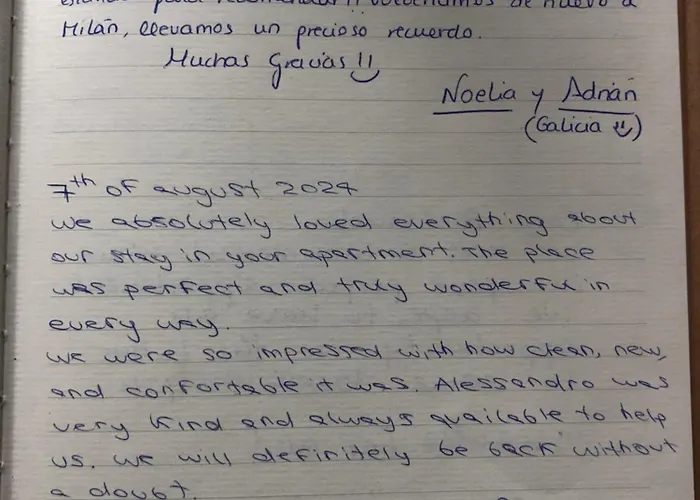 de nuevo a
Milán, llevamos un precioso recuerdo.
Muchas Gracias!!
Noelia y Adrián
(Galicia)
7th of august 2024
we absolutely loved everything about
our stay in your apartment. The place
was perfect and truly wonderful in
every way.
we were so impressed with how clean, new,
and confortable it was. Alessandro was
very kind and always available to help
us. we will definitely be back without
a doubt.